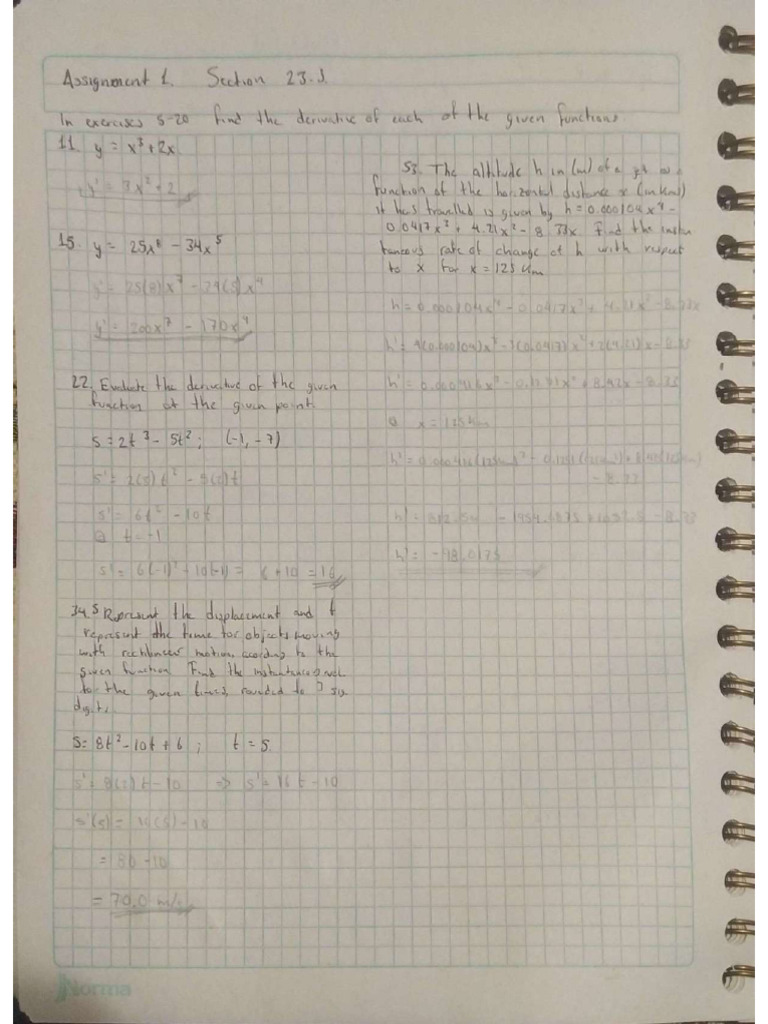 Assignment 1. Section 23.5
In exercises 5-20 find the derivative of each of the given functions
11. y = x³ + 2x
y' = 3x² + 2
15. y = 25x⁸ - 34x⁵
y' = 25(8)x⁷ - 34(5)x⁴
y' = 200x⁷ - 170x⁴
22. Evaluate the derivative of the given
function at the given point.
s = 2t³ - 5t²; (-1, -7)
s' = 6t² - 10t
@ t = -1
s' = 6(-1)² - 10(-1) = 6 + 10 = 16
34. s Represent the displacement and t
represent the time for objects moving
with rectilinear motion, acording to the
given function. Find the instantaneous
for the given times, rounded to 3 sig
digits
s = 8t² - 10t + 6; t = 5
s' = 8(2)t - 10 => s' = 16t - 10
s'(5) = 16(5) - 10
= 80 - 10
= 70.0 m/s
53. The altitude h in (m) of a jet as a
function of the horizontal distance x (in km)
it has travelled is given by h = 0.000104x⁴ -
0.0417x³ + 4.21x² - 8.33x. Find the instan
taneous rate of change of h with respect
to x for x = 125 km
h = 0.000104x⁴ - 0.0417x³ + 4.21x² - 8.33x
h' = 4(0.000104)x³ - 3(0.0417)x² + 2(4.21)x - 8.33
h' = 0.000416x³ - 0.1251x² + 8.42x - 8.33
@ x = 125 km
- 8.33
h' = 812.5 - 1954.6875 + 1052.5 - 8.33
h' = -98.0175
Norma